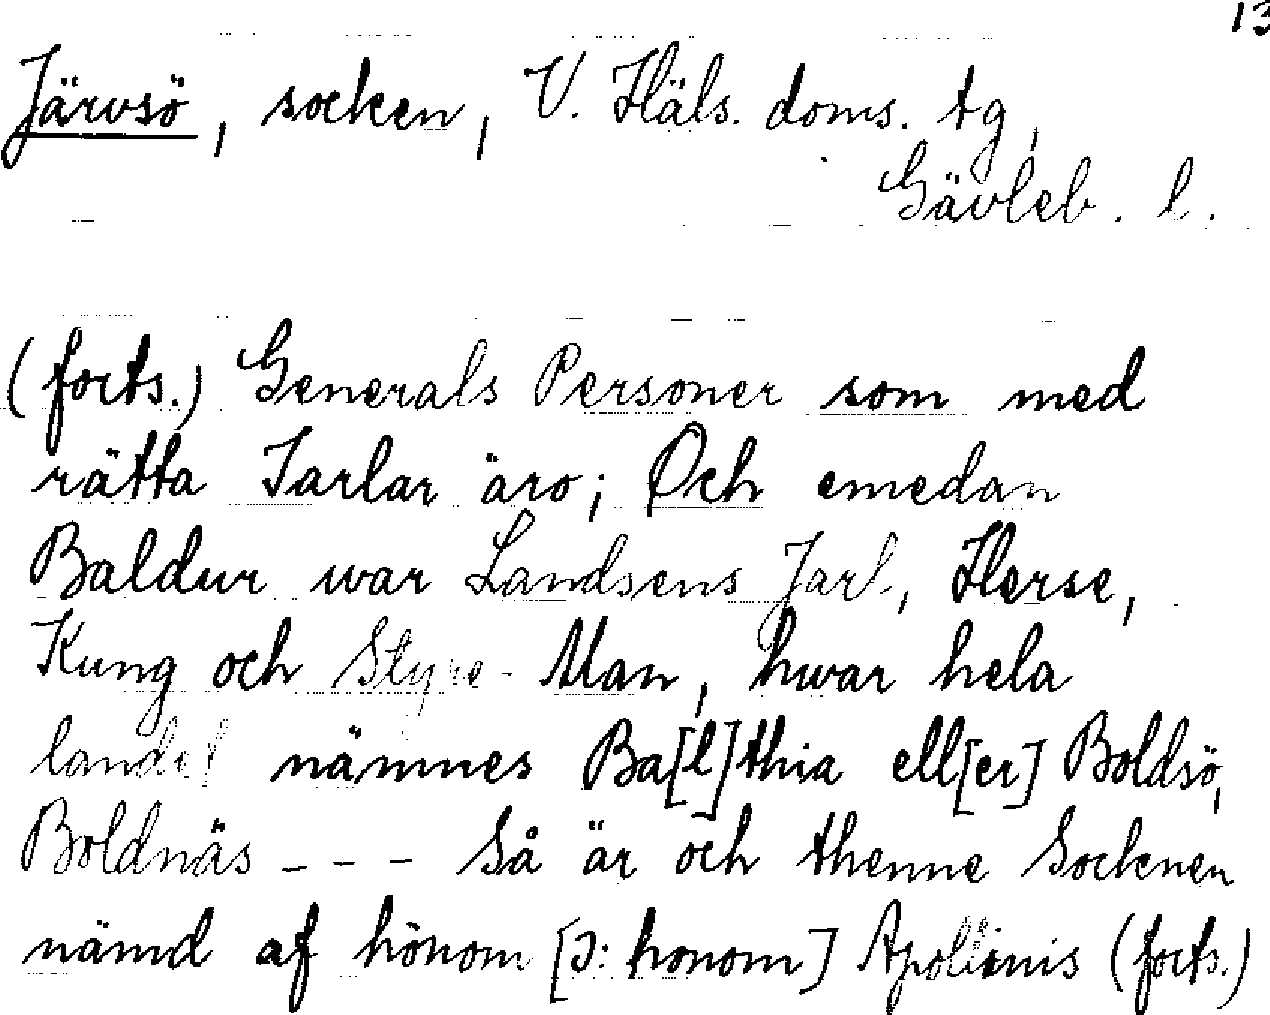 13
Järvsö, socken, V. Häls. doms. tg,
Gävleb. l.
(forts.) Generals Personer som med
rätta Jarlar äro; Och emedan
Baldur war Landsens Jarl, Herse,
Kung och Styre-Man, hwar hela
landet nämnes Ba[l]thia ell[er] Boldsö,
Boldnäs - - - Så är och thenne Socknen
nämd af hönom [ɔ: honom] Apollinis (forts.)